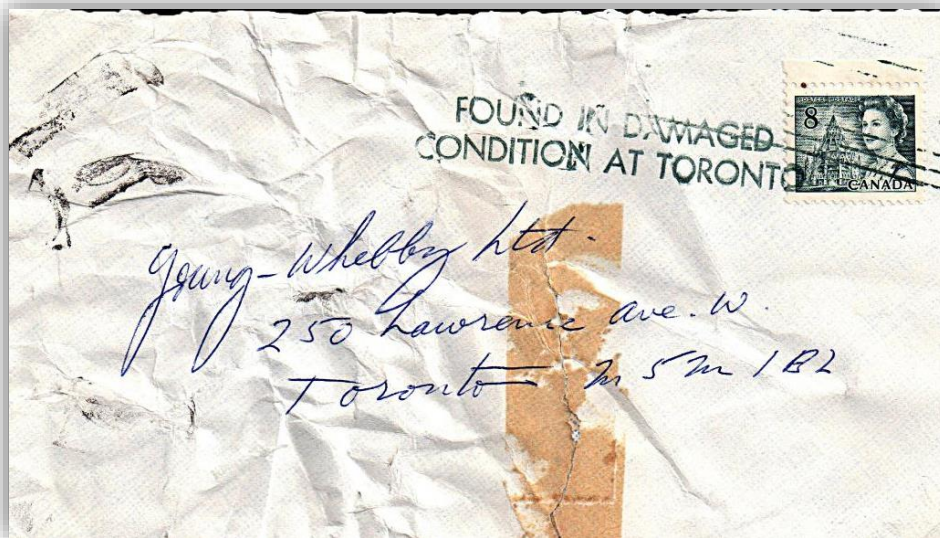 FOUND IN DAMAGED
CONDITION AT TORONTO
POSTES POSTAGE
8
CANADA
Young-Whebby Ltd.
250 Lawrence Ave. W.
Toronto M5M 1B2